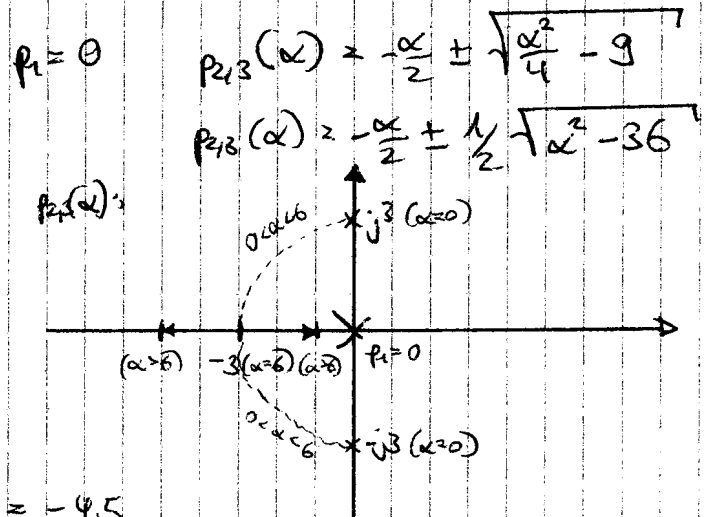 p₁ = 0
p₂,₃(α) = -α/2 ± √(α²/4 - 9)
p₂,₃(α) = -α/2 ± 1/2 √(α² - 36)
p₂,₃(α):
0<α<6
j3 (α=0)
(α>6) -3(α=6) (α>6) p₁=0
0<α<6
-j3 (α=0)
= -4,5